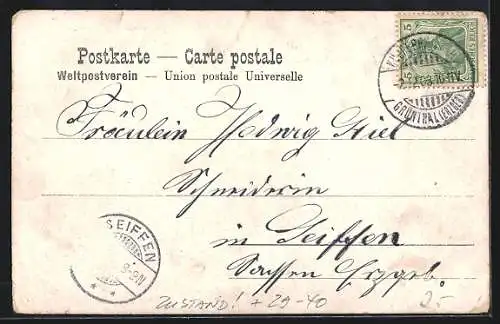 Postkarte — Carte postale
Weltpostverein — Union postale Universelle
Fräulein Hedwig Hiel
Schneiderin
in Seiffen
Sachsen Erzgeb.
SEIFFEN
8-9N
GRÜNTHAL (ERZGEB.)
5
ZUSTAND! + 29-40
25